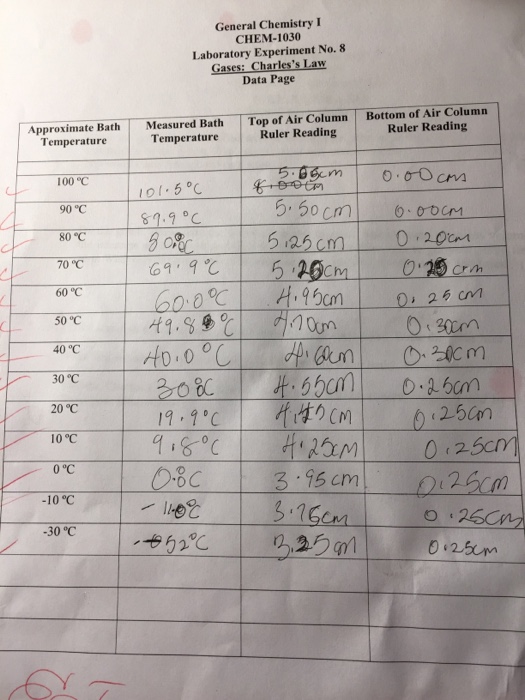 General Chemistry I
CHEM-1030
Laboratory Experiment No. 8
Gases: Charles's Law
Data Page
Approximate Bath Temperature Measured Bath Temperature Top of Air Column Ruler Reading Bottom of Air Column Ruler Reading
100 °C 101.5°C 8.00cm 0.00cm
90 °C 89.9°C 5.50cm 0.00cm
80 °C 5.25cm 0.20cm
70 °C 69.9°C
60 °C 60.0°C 4.95cm 0.25cm
50 °C 4.70cm 0.30cm
40 °C 40.0°C 0.30cm
30 °C 4.55cm 0.25cm
20 °C 19.9°C 0.25cm
10 °C 9.8°C 4.25cm 0.25cm
0 °C 3.95cm 0.25cm
-10 °C 0.25cm
-30 °C 3.25cm 0.25cm